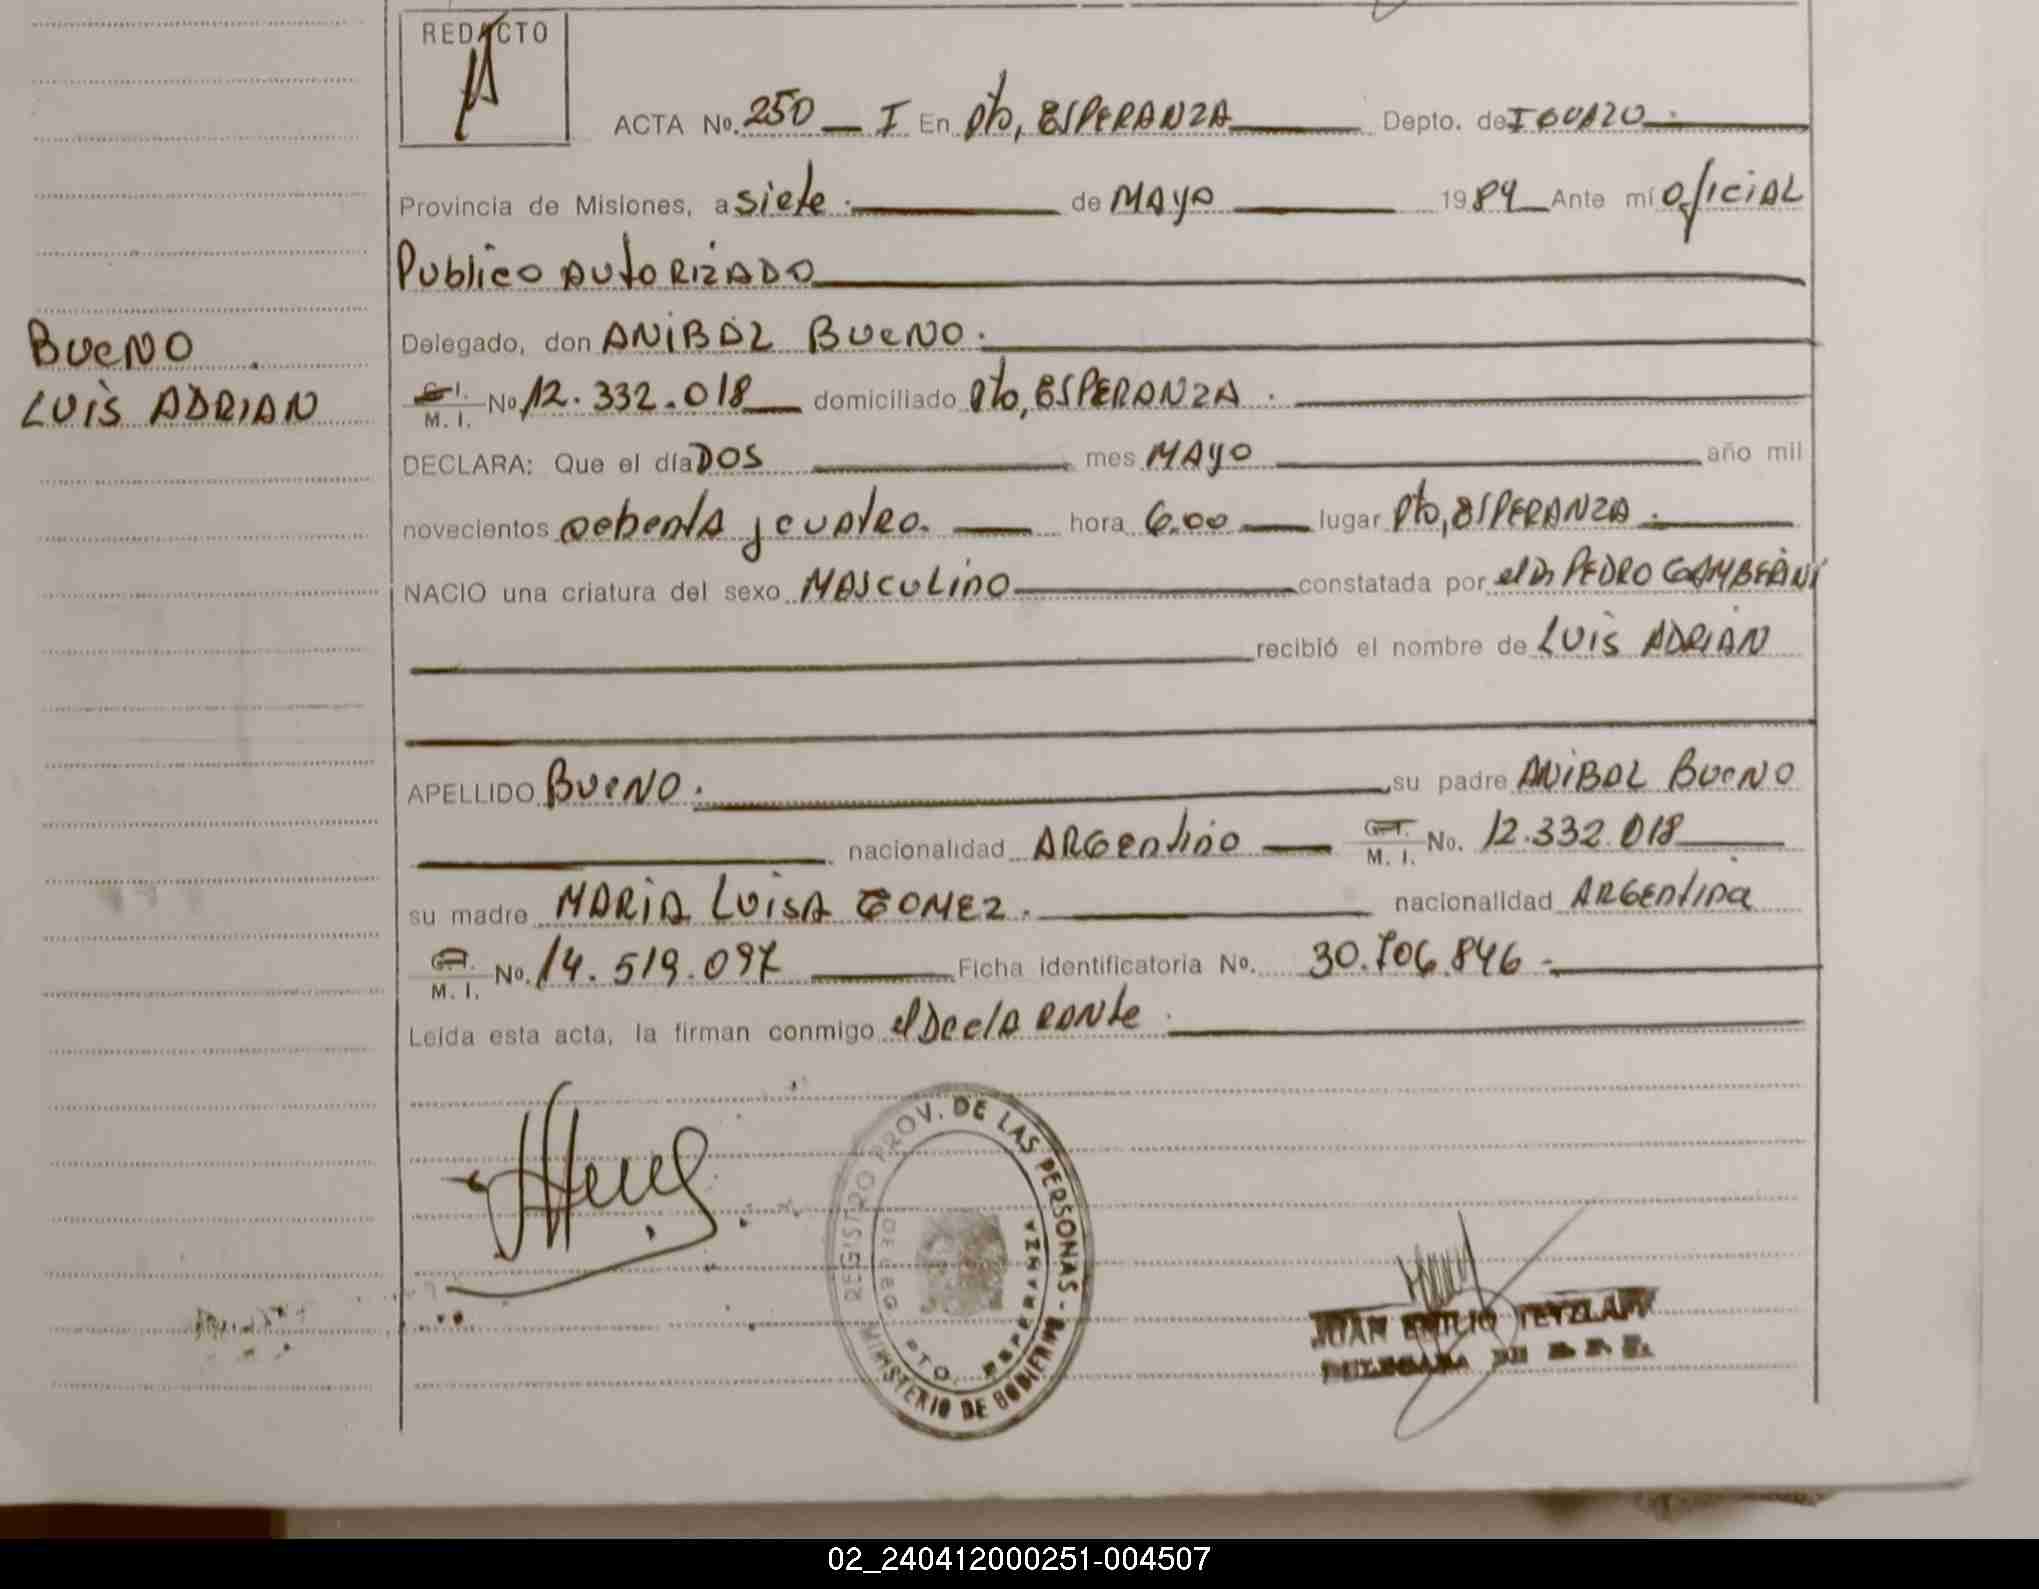 REDACTO
ACTA No. 250 — I En Pto, ESPERANZA Depto. de IGUAZU
Provincia de Misiones, a siete de MAYO 1984 Ante mí OFICIAL
Publico AUTORIZADO
Delegado, don ANIBAL BUENO.
BUENO
C.I. M. I. No. 12.332.018 domiciliado Pto, ESPERANZA.
LUIS ADRIAN
DECLARA: Que el día DOS mes MAYO año mil
novecientos ochenta y cuatro. hora 6.00 lugar Pto, ESPERANZA.
NACIO una criatura del sexo MASCULINO constatada por el Dr PEDRO GAMBERINI
recibió el nombre de LUIS ADRIAN
APELLIDO BUENO. su padre ANIBAL BUENO
nacionalidad ARGENTINO C.I. M. I. No. 12.332.018
su madre MARIA LUISA GOMEZ. nacionalidad ARGENTINA
C.I. M. I. No. 14.519.097 Ficha identificatoria No. 30.706.846
Leída esta acta, la firman conmigo el DeclaRANTE.
REGISTRO PROV. DE LAS PERSONAS - MINISTERIO DE GOBIERNO
DELEG. PTO. ESPERANZA
JUAN EMILIO TETZLAFF
02_240412000251-004507